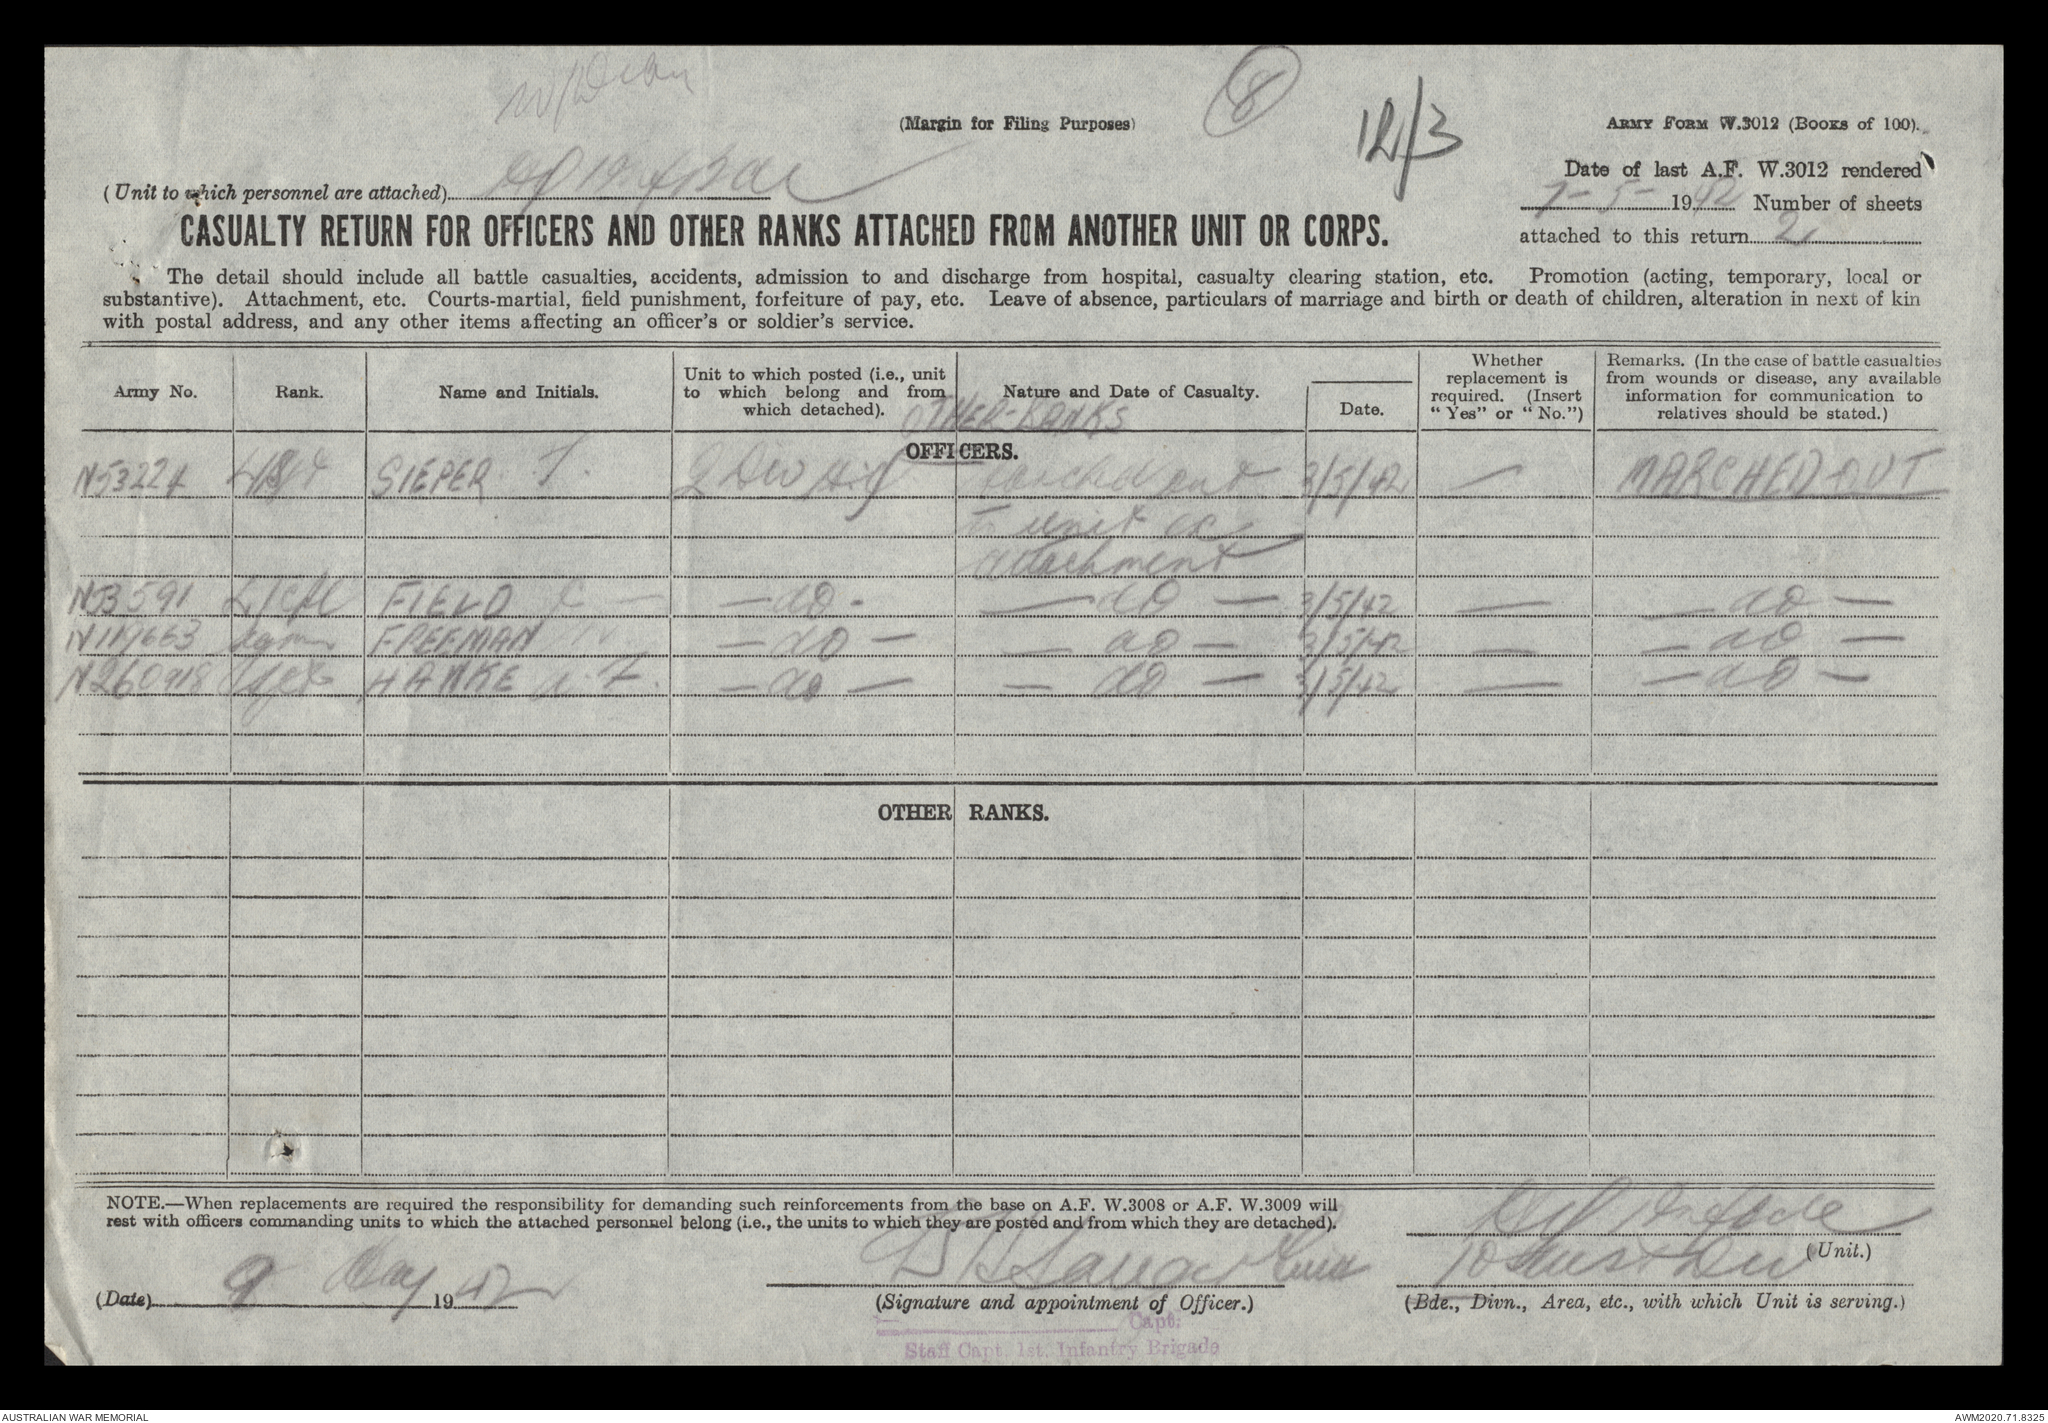 (Margin for Filing Purposes)
8
12/3
ARMY FORM W.3012 (Books of 100).
(Unit to which personnel are attached)
Date of last A.F. W.3012 rendered
7-5-1942 Number of sheets
attached to this return 2
CASUALTY RETURN FOR OFFICERS AND OTHER RANKS ATTACHED FROM ANOTHER UNIT OR CORPS.
The detail should include all battle casualties, accidents, admission to and discharge from hospital, casualty clearing station, etc. Promotion (acting, temporary, local or
substantive). Attachment, etc. Courts-martial, field punishment, forfeiture of pay, etc. Leave of absence, particulars of marriage and birth or death of children, alteration in next of kin
with postal address, and any other items affecting an officer's or soldier's service.
Army No. Rank. Name and Initials. Unit to which posted (i.e., unit to which belong and from which detached). Nature and Date of Casualty. Date. Whether replacement is required. (Insert "Yes" or "No.") Remarks. (In the case of battle casualties from wounds or disease, any available information for communication to relatives should be stated.)
OTHER-RANKS
OFFICERS.
N53224 L/Sgt SIEPER T. 2 Div Sig Marched out 3/5/42 — MARCHED OUT
to unit ex
attachment
N53591 L/Cpl FIELD — do — — do — 3/5/42 — — do —
FREEMAN — do — — do — 3/5/42 — — do —
N260918 HANKE — do — — do — 3/5/42 — — do —
OTHER RANKS.
NOTE.—When replacements are required the responsibility for demanding such reinforcements from the base on A.F. W.3008 or A.F. W.3009 will
rest with officers commanding units to which the attached personnel belong (i.e., the units to which they are posted and from which they are detached).
(Unit.)
(Date) 9 May 1942
(Signature and appointment of Officer.)
10 Aust Div
(Bde., Divn., Area, etc., with which Unit is serving.)
Capt:
Staff Capt. 1st. Infantry Brigade
AUSTRALIAN WAR MEMORIAL
AWM2020.71.8325